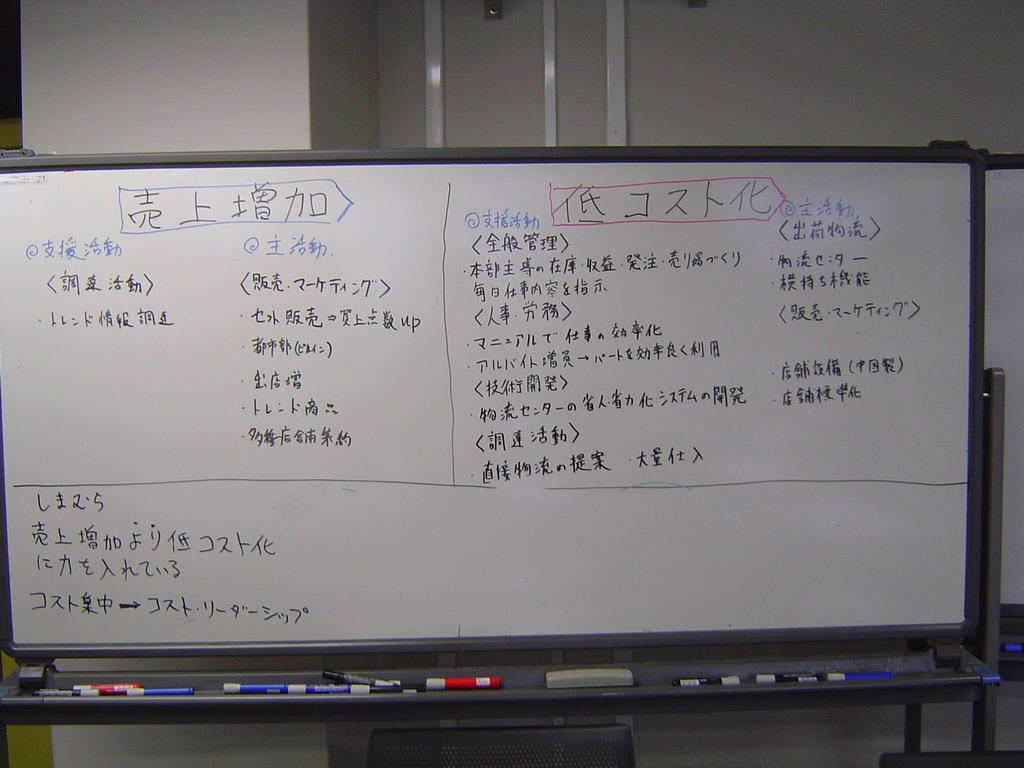 売上増加
@支援活動
〈調達活動〉
・トレンド情報調達
@主活動
〈販売・マーケティング〉
・セット販売⇒買上点数up
・都市部(ビルイン)
・出店増
・トレンド商品
・多種店舗集約
低コスト化
@支援活動
〈全般管理〉
・本部主導の在庫・収益・発注・売り場づくり
毎日仕事内容を指示
〈人事・労務〉
・マニュアルで仕事の効率化
・アルバイト増員→パートを効率良く利用
〈技術開発〉
・物流センターの省人・省力化システムの開発
〈調達活動〉
・直接物流の提案 ・大量仕入
@主活動
〈出荷物流〉
・物流センター
・横持ち機能
〈販売・マーケティング〉
・店舗設備(中国製)
・店舗標準化
しまむら
売上増加より低コスト化
に力を入れている
コスト集中→コスト・リーダーシップ